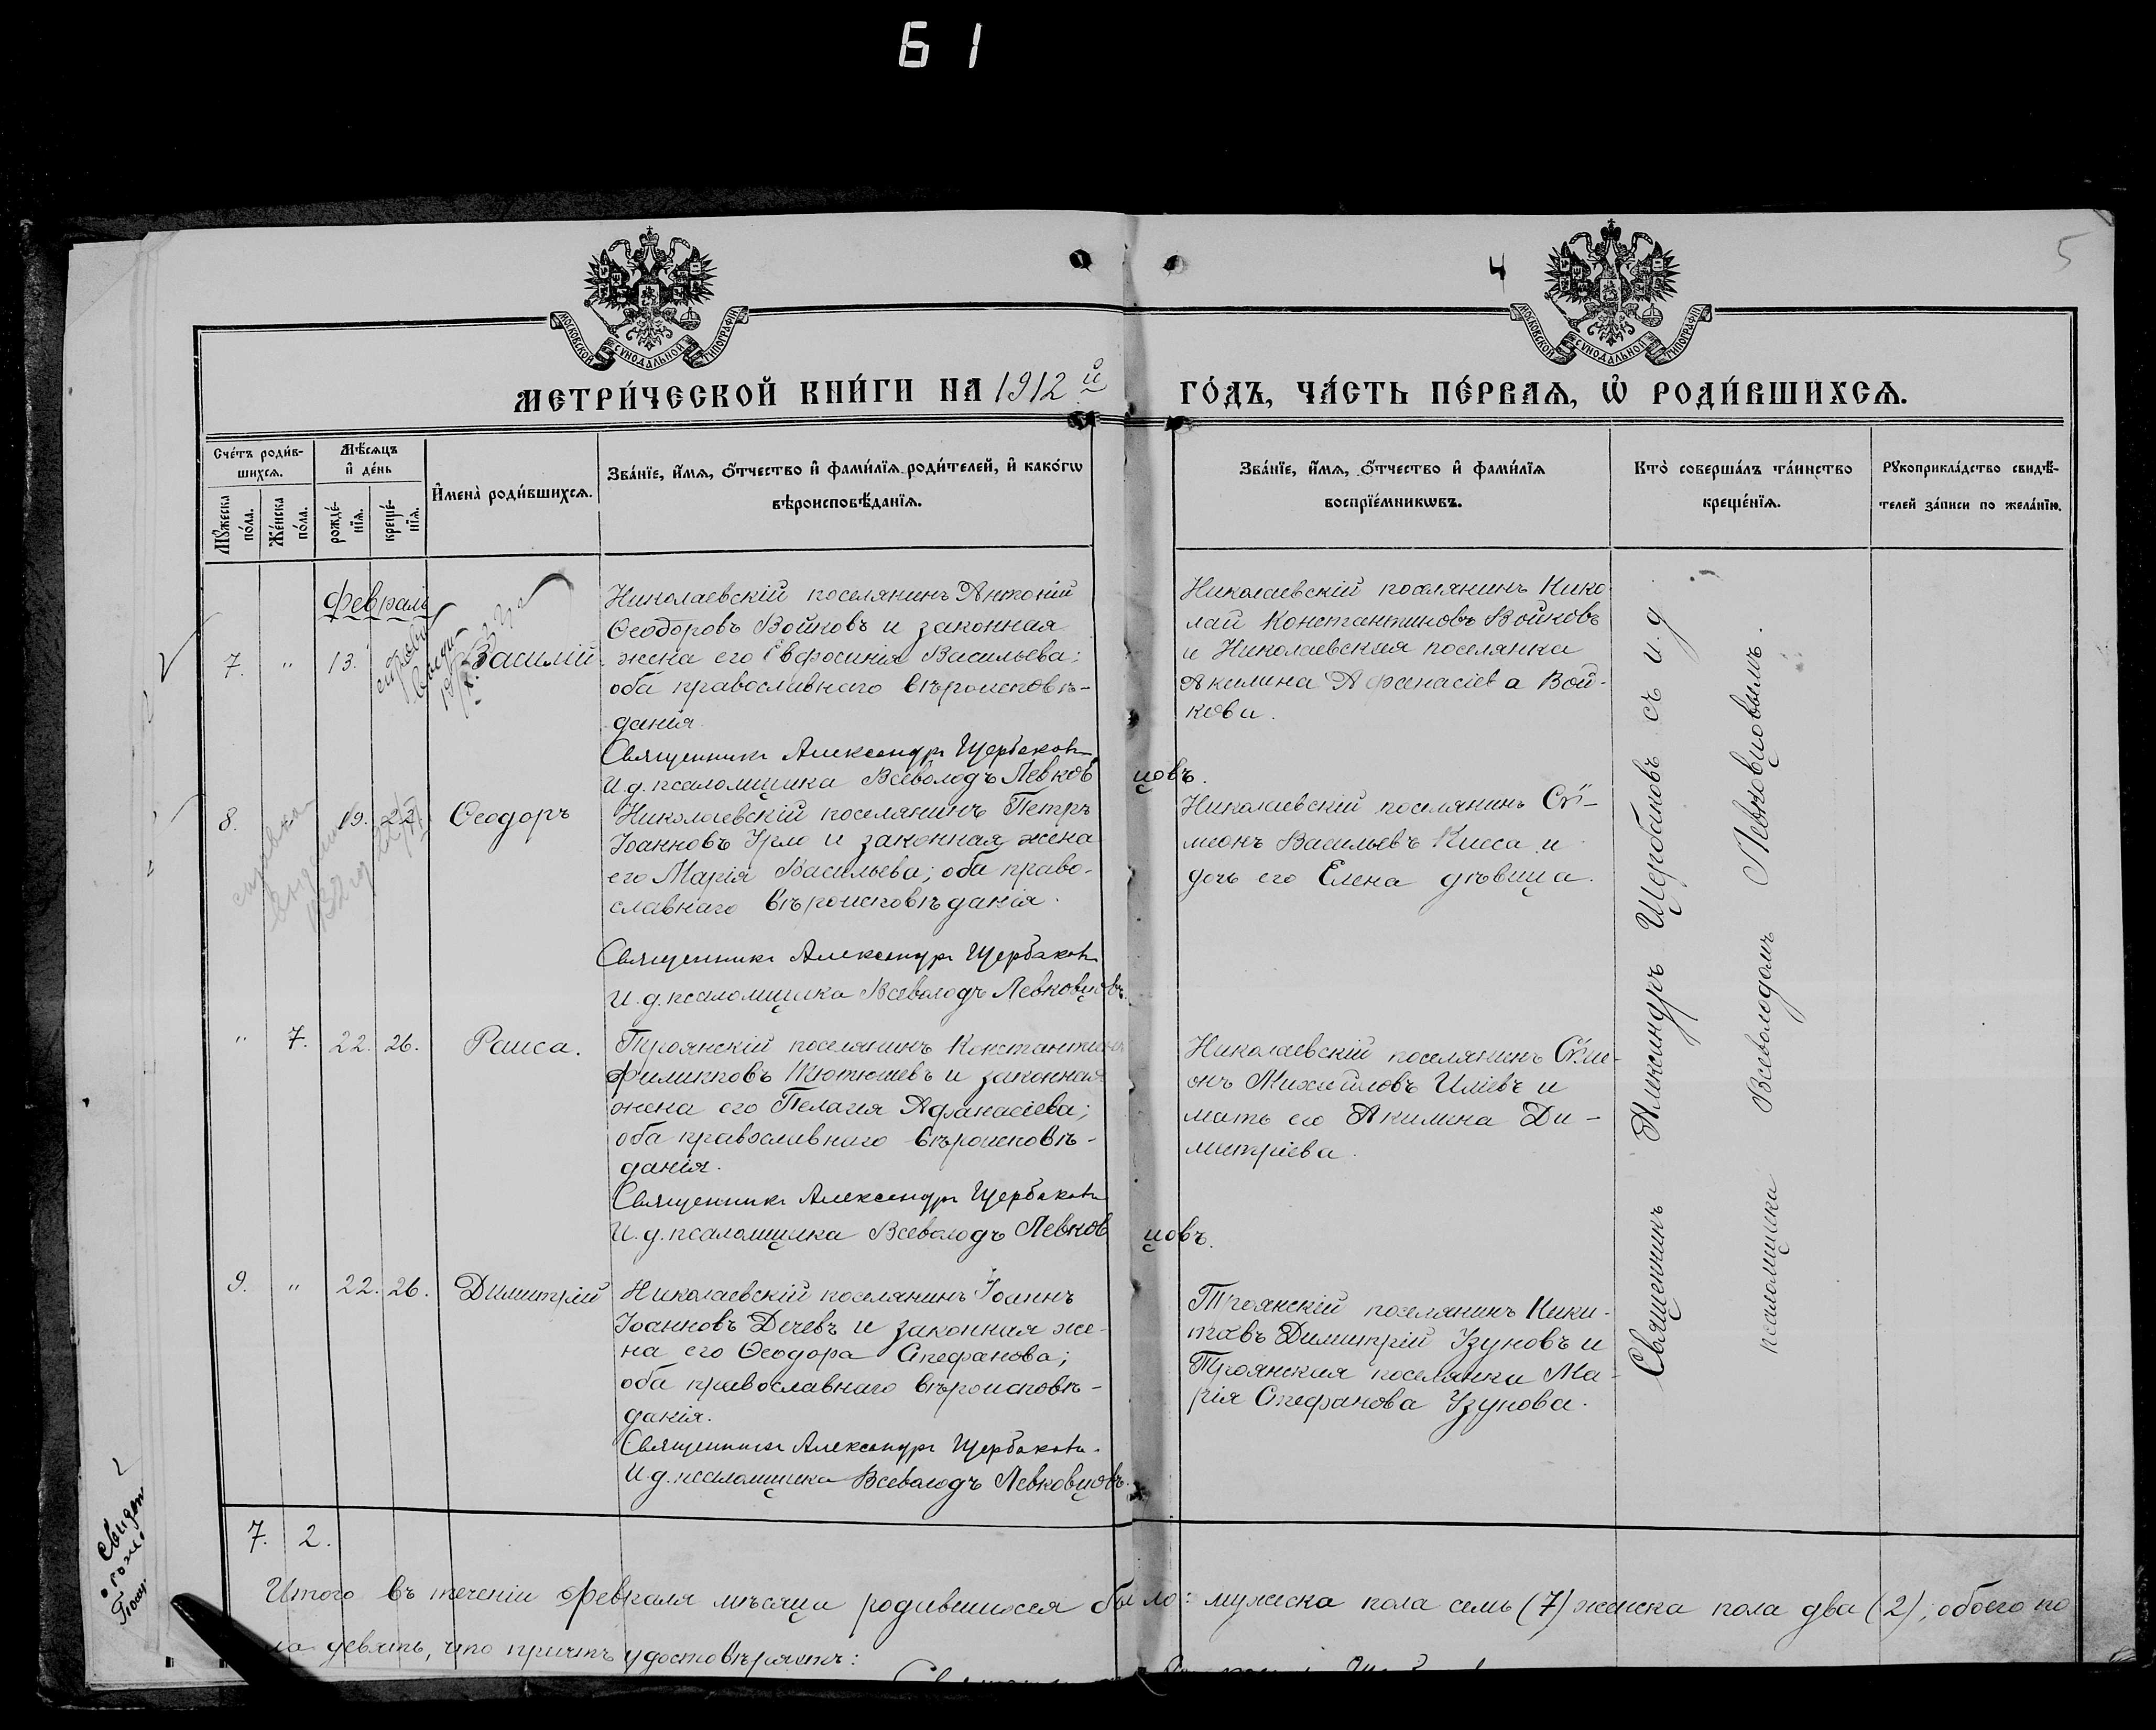 61
4
5
МОСКОВСКОЙ СУНОДАЛЬНОЙ ТИПОГРАФІИ
МОСКОВСКОЙ СУНОДАЛЬНОЙ ТИПОГРАФІИ
МЕТРИ́ЧЕСКОЙ КНИ́ГИ НА 1912 й ГО́ДЪ, ЧА́СТЬ ПЕ́РВАѦ, Ѡ҆ РОДИ́ВШИХСѦ.
Сче́тъ роди́в-
шихсѧ.
Мꙋ́жеска по́ла.
Же́нска по́ла.
Мѣ́сѧцъ
и҆ де́нь
рожде́-
нїѧ.
креще́-
нїѧ.
И҆мена̀ роди́вшихсѧ.
Зва́нїе, и҆́мѧ, ѻ҆́тчество и҆ фами́лїѧ роди́телей, и҆ како́гѡ
вѣроисповѣ́данїѧ.
Зва́нїе, и҆́мѧ, ѻ҆́тчество и҆ фами́лїѧ
воспрїе́мникѡвъ.
Кто̀ соверша́лъ та́инство
креще́нїѧ.
Рꙋкоприкла́дство свидѣ́-
телей за́писи по жела́нїю.
Февраль
7. " 13. Василій.
Николаевскій поселянинъ Антоній
Ѳеодоровъ Войковъ и законная
жена его Евфросинія Васильева;
оба православнаго вѣроисповѣ-
данія.
Священникъ Александръ Щербаковъ
И.д. псаломщика Всеволодъ Левковцовъ.
Николаевскій поселянинъ Нико
лай Константиновъ Войковъ
и Николаевская поселянка
Акилина Аѳанасіева Вой-
кова.
8. 19. 22. Ѳеодоръ
Николаевскій поселянинъ Петръ
Іоанновъ Урло и законная жена
его Марія Васильева; оба право-
славнаго вѣроисповѣданія.
Священникъ Александръ Щербаковъ
И.д. псаломщика Всеволодъ Левковцовъ.
Николаевскій поселянинъ Сѵ-
меонъ Васильевъ Кисса и
дочь его Елена дѣвица.
справка
выдана
1932 г
" 7. 22. 26. Раиса.
Троянскій поселянинъ Константинъ
Филипповъ Тютюшевъ и законная
жена его Пелагія Афанасіева;
оба православнаго вѣроисповѣ-
данія.
Священникъ Александръ Щербаковъ
И.д. псаломщика Всеволодъ Левковцовъ.
Николаевскій поселянинъ Сѵме-
онъ Михайловъ Иліевъ и
мать его Акилина Ди-
митріева.
9. " 22. 26. Димитрій
Николаевскій поселянинъ Іоаннъ
Іоанновъ Дечевъ и законная же-
на его Ѳеодора Стефанова;
оба православнаго вѣроисповѣ-
данія.
Священникъ Александръ Щербаковъ.
И.д. псаломщика Всеволодъ Левковцовъ.
Троянскій поселянинъ Ники-
товъ Димитрій Узуновъ и
Троянская поселянка Ма-
рія Стефанова Узунова.
Священникъ Александръ Щербаковъ съ и.д.
псаломщика Всеволодомъ Левковцовымъ.
7. 2.
Итого въ теченіи февраля мѣсяца родившихся было: мужеска пола семь (7) женска пола два (2); обоего по
ла девять, что причтъ удостовѣряетъ: